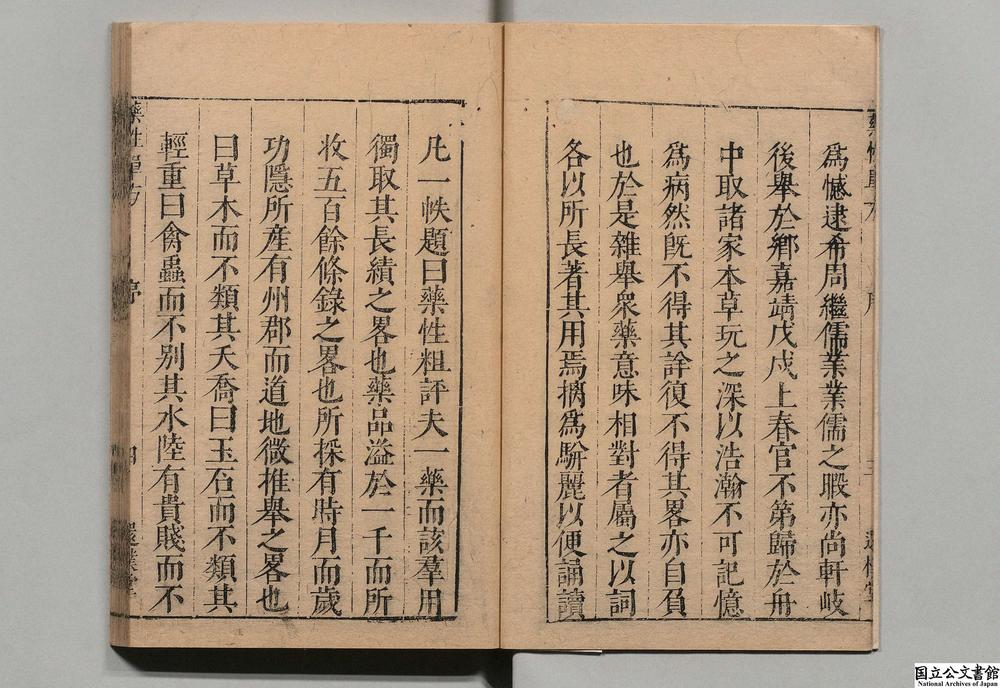 爲憾逮希周繼儒業業儒之暇亦尚軒岐
後舉於鄉嘉靖戊戌上春官不第歸於舟
中取諸家本草玩之深以浩瀚不可記憶
爲病然旣不得其詳復不得其畧亦自負
也於是雜舉衆藥意味相對者屬之以詞
各以所長著其用焉摛爲駢麗以便誦讀
凡一帙題曰藥性粗評夫一藥而該羣用
獨取其長績之畧也藥品溢於一千而所
收五百餘條錄之畧也所採有時月而歲
功隱所產有州郡而道地微推舉之畧也
曰草木而不類其夭喬曰玉石而不類其
輕重曰禽蟲而不别其水陸有貴賤而不
藥性
序
四
国立公文書館
National Archives of Japan